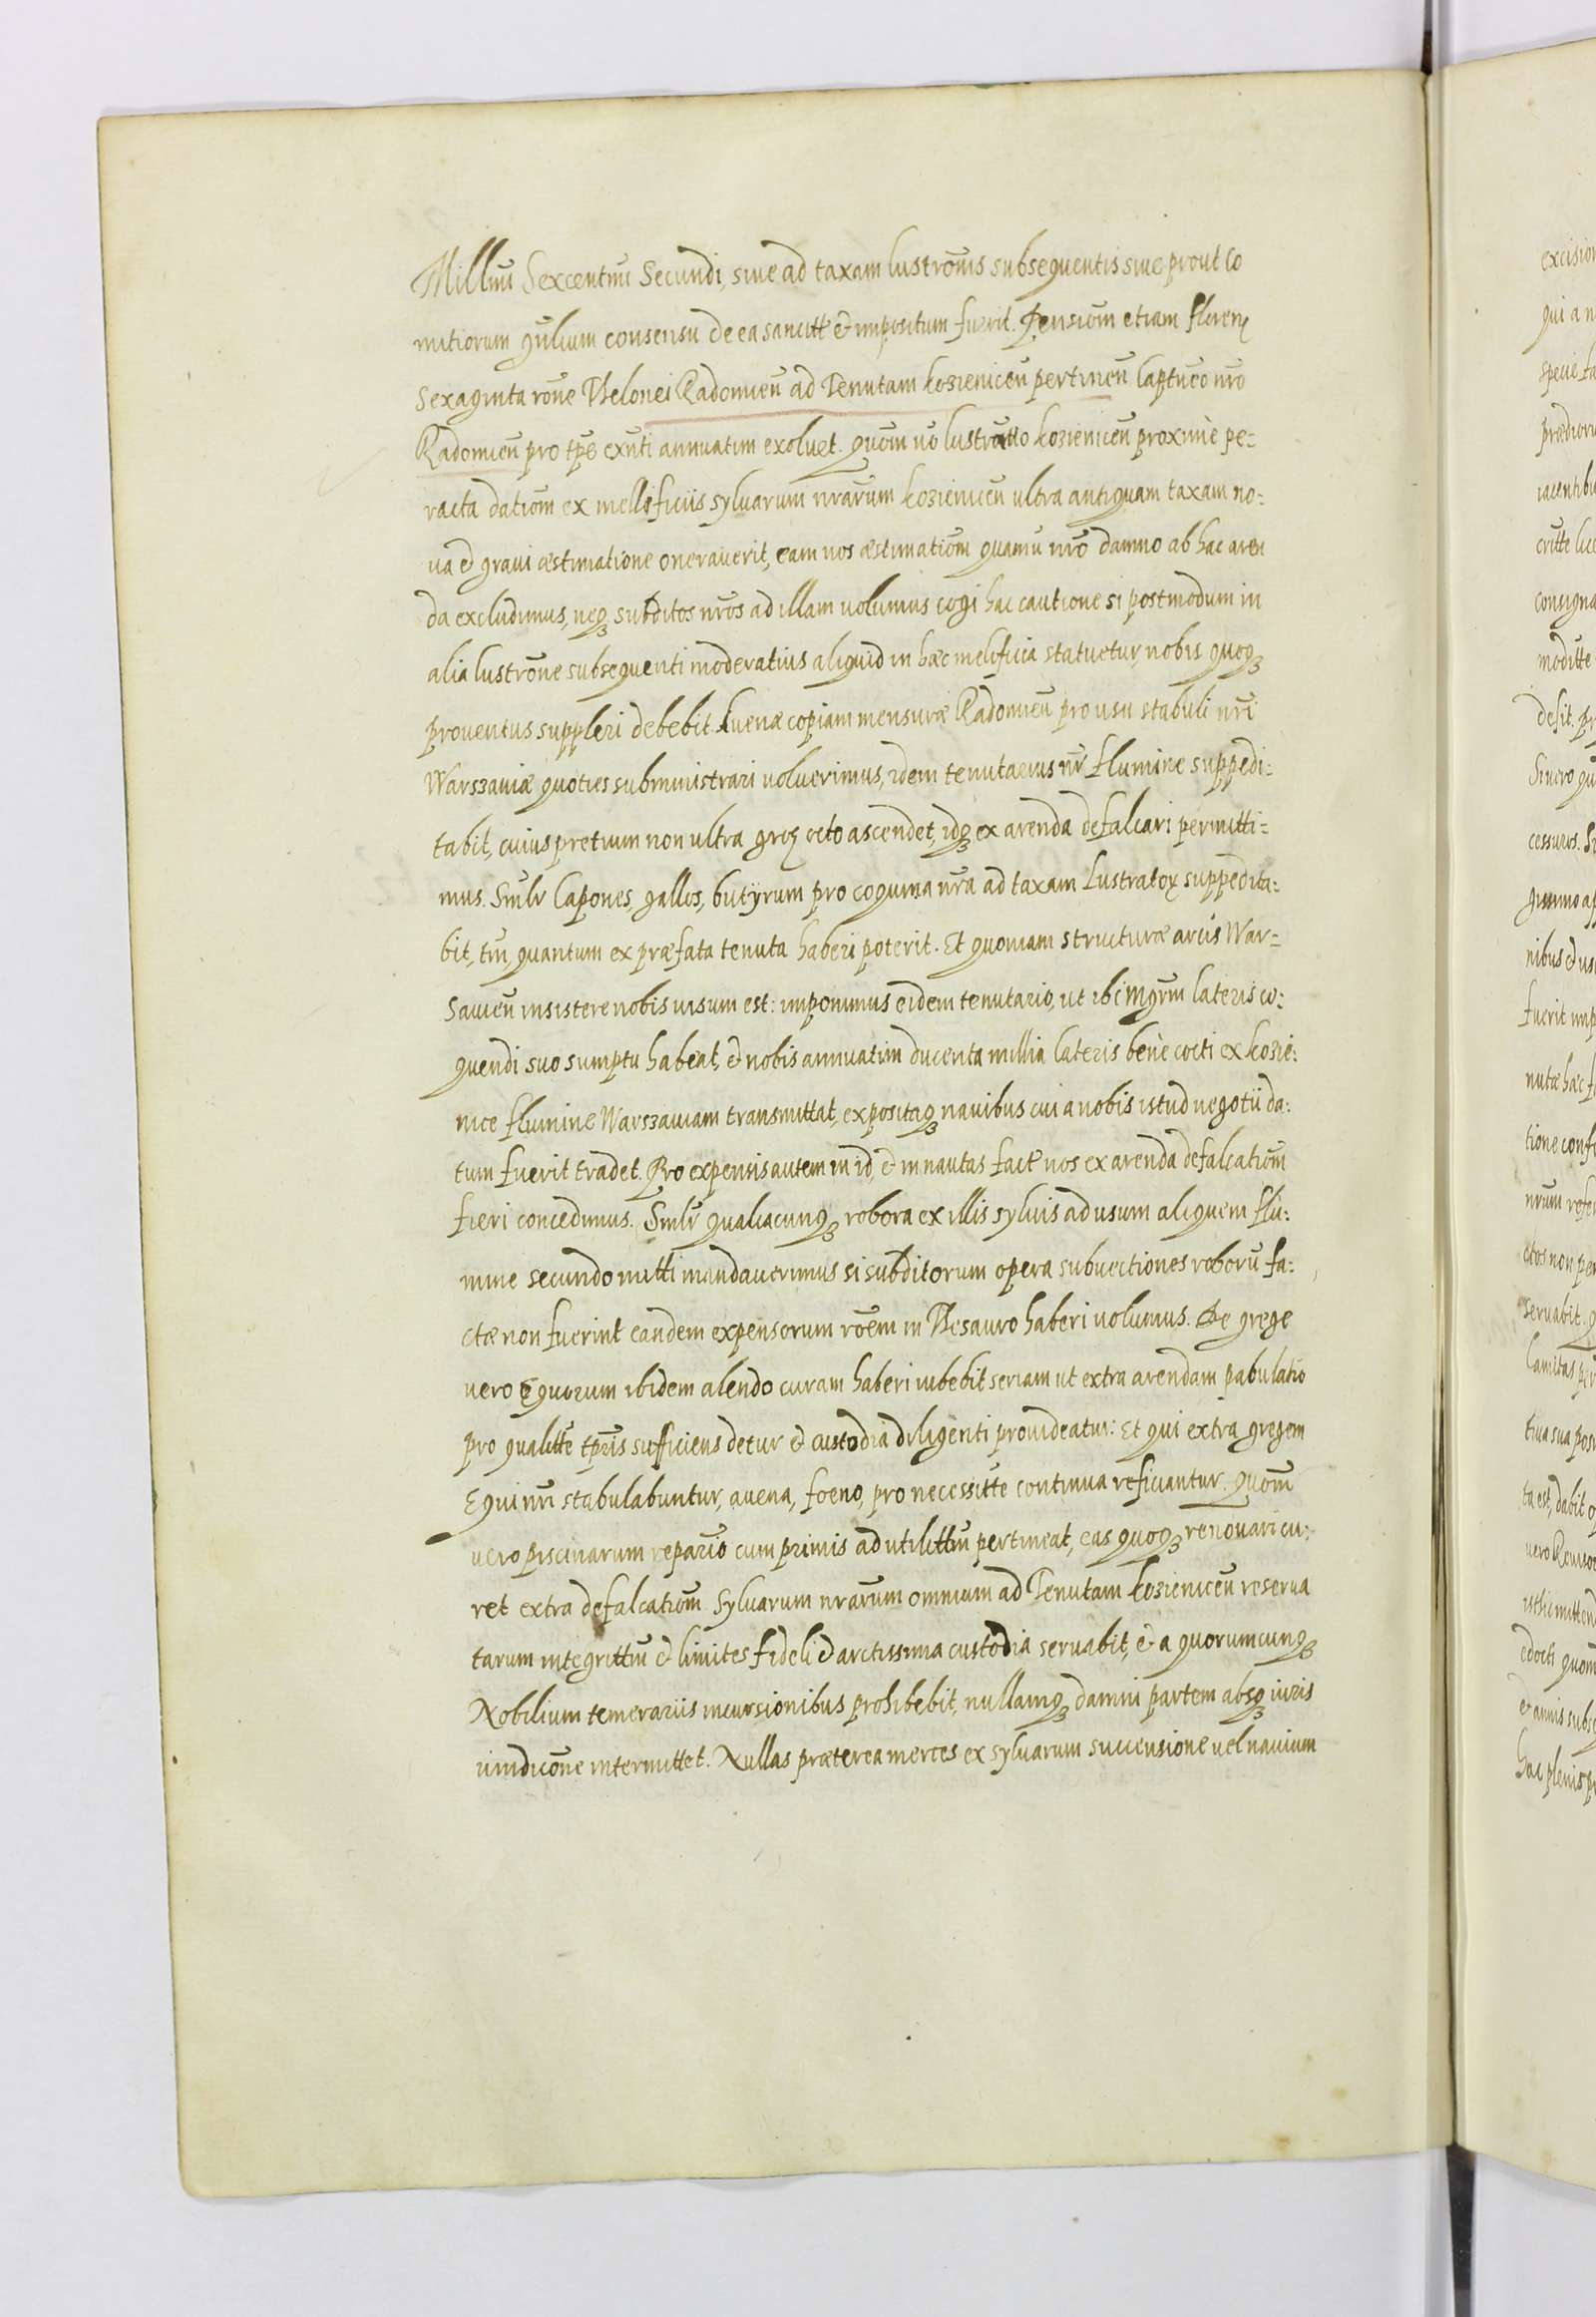 Millm̃i Sexcentm̃i Secundi, siue ad taxam lustrõnis subsequentis siue prout Co
mitiorum gñlium consensu de ea sancitũ & impositum fuerit. Pensiõm etiam floren
sexaginta rõne Thelonei Radomieñ ad Tenutam kozieniceñ pertineñ Captñeo nr̃o
Radomieñ pro tp̃e exñti annuatim exoluet. Quõm ũo lustratio kozieniceñ proximè pe=
racta datiõm ex mellificiis syluarum nr̃arum kozieniceñ ultra antiquam taxam no=
ua & graui æstimatione onerauerit, eam nos æstimatiõm quamũ nr̃o damno ab hac aren
da excludimus, neqꝫ subditos nr̃os ad illam uolumus cogi hac cautione si postmodum in
alia lustrõne subsequenti moderatius aliquid in hæc melificia statuetur, nobis quoqꝫ
prouentus suppleri debebit. Auenæ copiam mensuræ Radomieñ pro usu stabuli nr̃i
Warszauiæ quoties subministrari uoluerimus, idem tenutarius nr̃ flumine suppedi=
tabit, cuius pretium non ultra gros octo ascendet, idqꝫ ex arenda defalcari permitti=
mus. Sm̃lr Capones, gallos, butÿrum pro coquina nr̃a ad taxam Lustratoꝝ suppedita=
bit, tm̃, quantum ex præfata tenuta haberi poterit. Et quoniam structuræ arcis War=
saueñ insistere nobis uisum est: imponimus eidem tenutario, ut ibi mgr̃m lateris co=
quendi suo sumptu habeat, & nobis annuatim ducenta millia lateris benè cocti ex kozie:
nice flumine Warszauiam transmittat, expositaqꝫ nauibus cui a nobis istud negotii da:
tum fuerit tradet. Pro expensis autem in id, & in nautas fact nos ex arenda defalcatiõm
fieri concedimus. Sm̃lr qualiacunqꝫ robora ex illis syluis ad usum aliquem flu:
mine secundo mitti mandauerimus si subditorum opera subuectiones roborũ fa:
ctæ non fuerint eandem expensorum rõem in Thesauro haberi uolumus. De grege
uero Equorum ibidem alendo curam haberi iubebit seriam ut extra arendam pabulatio
pro qualittẽ tp̃ris sufficiens detur & custodia diligenti prouideatur: Et qui extra gregem
Equi nr̃i stabulabuntur, auena, foeno, pro necessittẽ continua reficiantur. Quõm
uero piscinarum reparĩo cum primis ad utilittm̃ pertineat, eas quoqꝫ renouari cu:
ret extra defalcatiõm. Syluarum nr̃arum omnium ad Tenutam kozieniceñ reserua
tarum integrittm̃ & limites fideli & arctissima custodia seruabit, & a quorumcunqꝫ
Nobilium temerariis incursionibus prohibebit, nullamqꝫ damni partem absqꝫ iuris
uindicõne intermittet. Nullas præterea merces ex syluarum succensione uel nauium